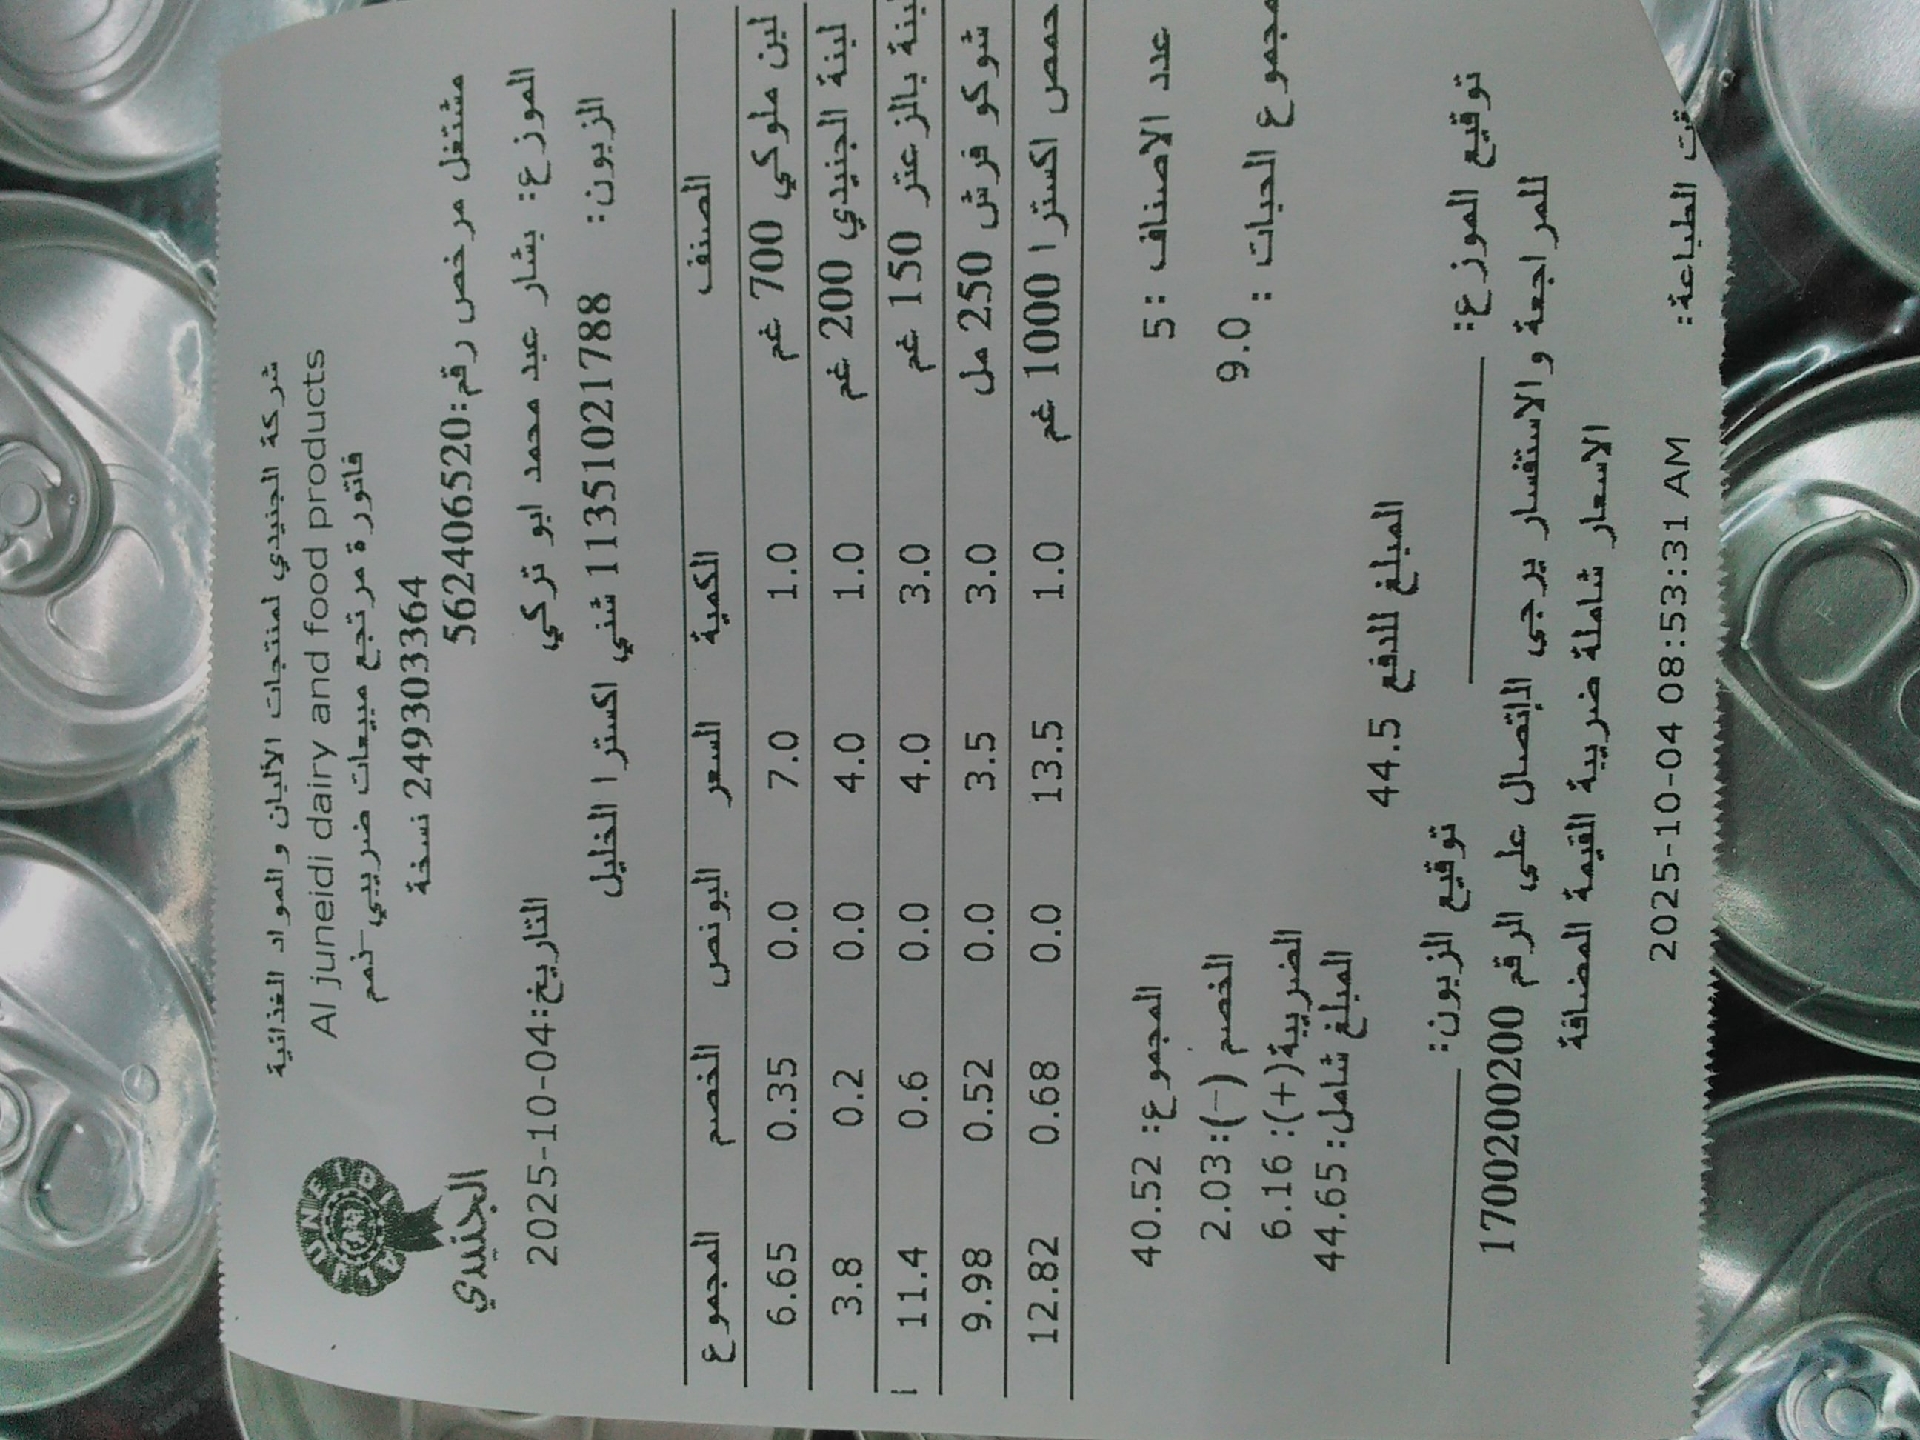 شركة الجنيدي لمنتجات الألبان والمواد الغذائية
Al juneidi dairy and food products
فاتورة مرتجع مبيعات ضريبي-ذمم
249303364 نسخة
مشتغل مرخص رقم:562406520
AL JUNEIDI
الجنيدي
الموزع: بشار عبد محمد ابو تركي
التاريخ:2025-10-04
الزبون: 1135102178 شني اكسترا الخليل
الصنف الكمية السعر البونص الخصم المجموع
لبن ملوكي 700 غم 1.0 7.0 0.0 0.35 6.65
لبنة الجنيدي 200 غم 1.0 4.0 0.0 0.2 3.8
لبنة بالزعتر 150 غم 3.0 4.0 0.0 0.6 11.4
شوكو فرش 250 مل 3.0 3.5 0.0 0.52 9.98
حمص اكسترا 1000 غم 1.0 13.5 0.0 0.68 12.82
عدد الاصناف :5 المجموع: 40.52
مجموع الحبات : 9.0 الخصم (-): 2.03
الضريبة(+): 6.16
المبلغ شامل: 44.65
المبلغ للدفع 44.5
توقيع الموزع: توقيع الزبون:
للمراجعة والاستفسار يرجى الإتصال على الرقم 1700200200
الاسعار شاملة ضريبة القيمة المضافة
الطباعة: 2025-10-04 08:53:31 AM